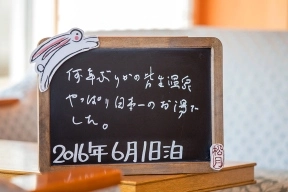 何年ぶりかの皆生温泉
やっぱり日本一のお湯で
した。
2016年6月1日泊
松月